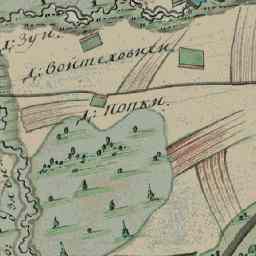 д: Зуи.
д: Войтеховичи.
д: Попки.